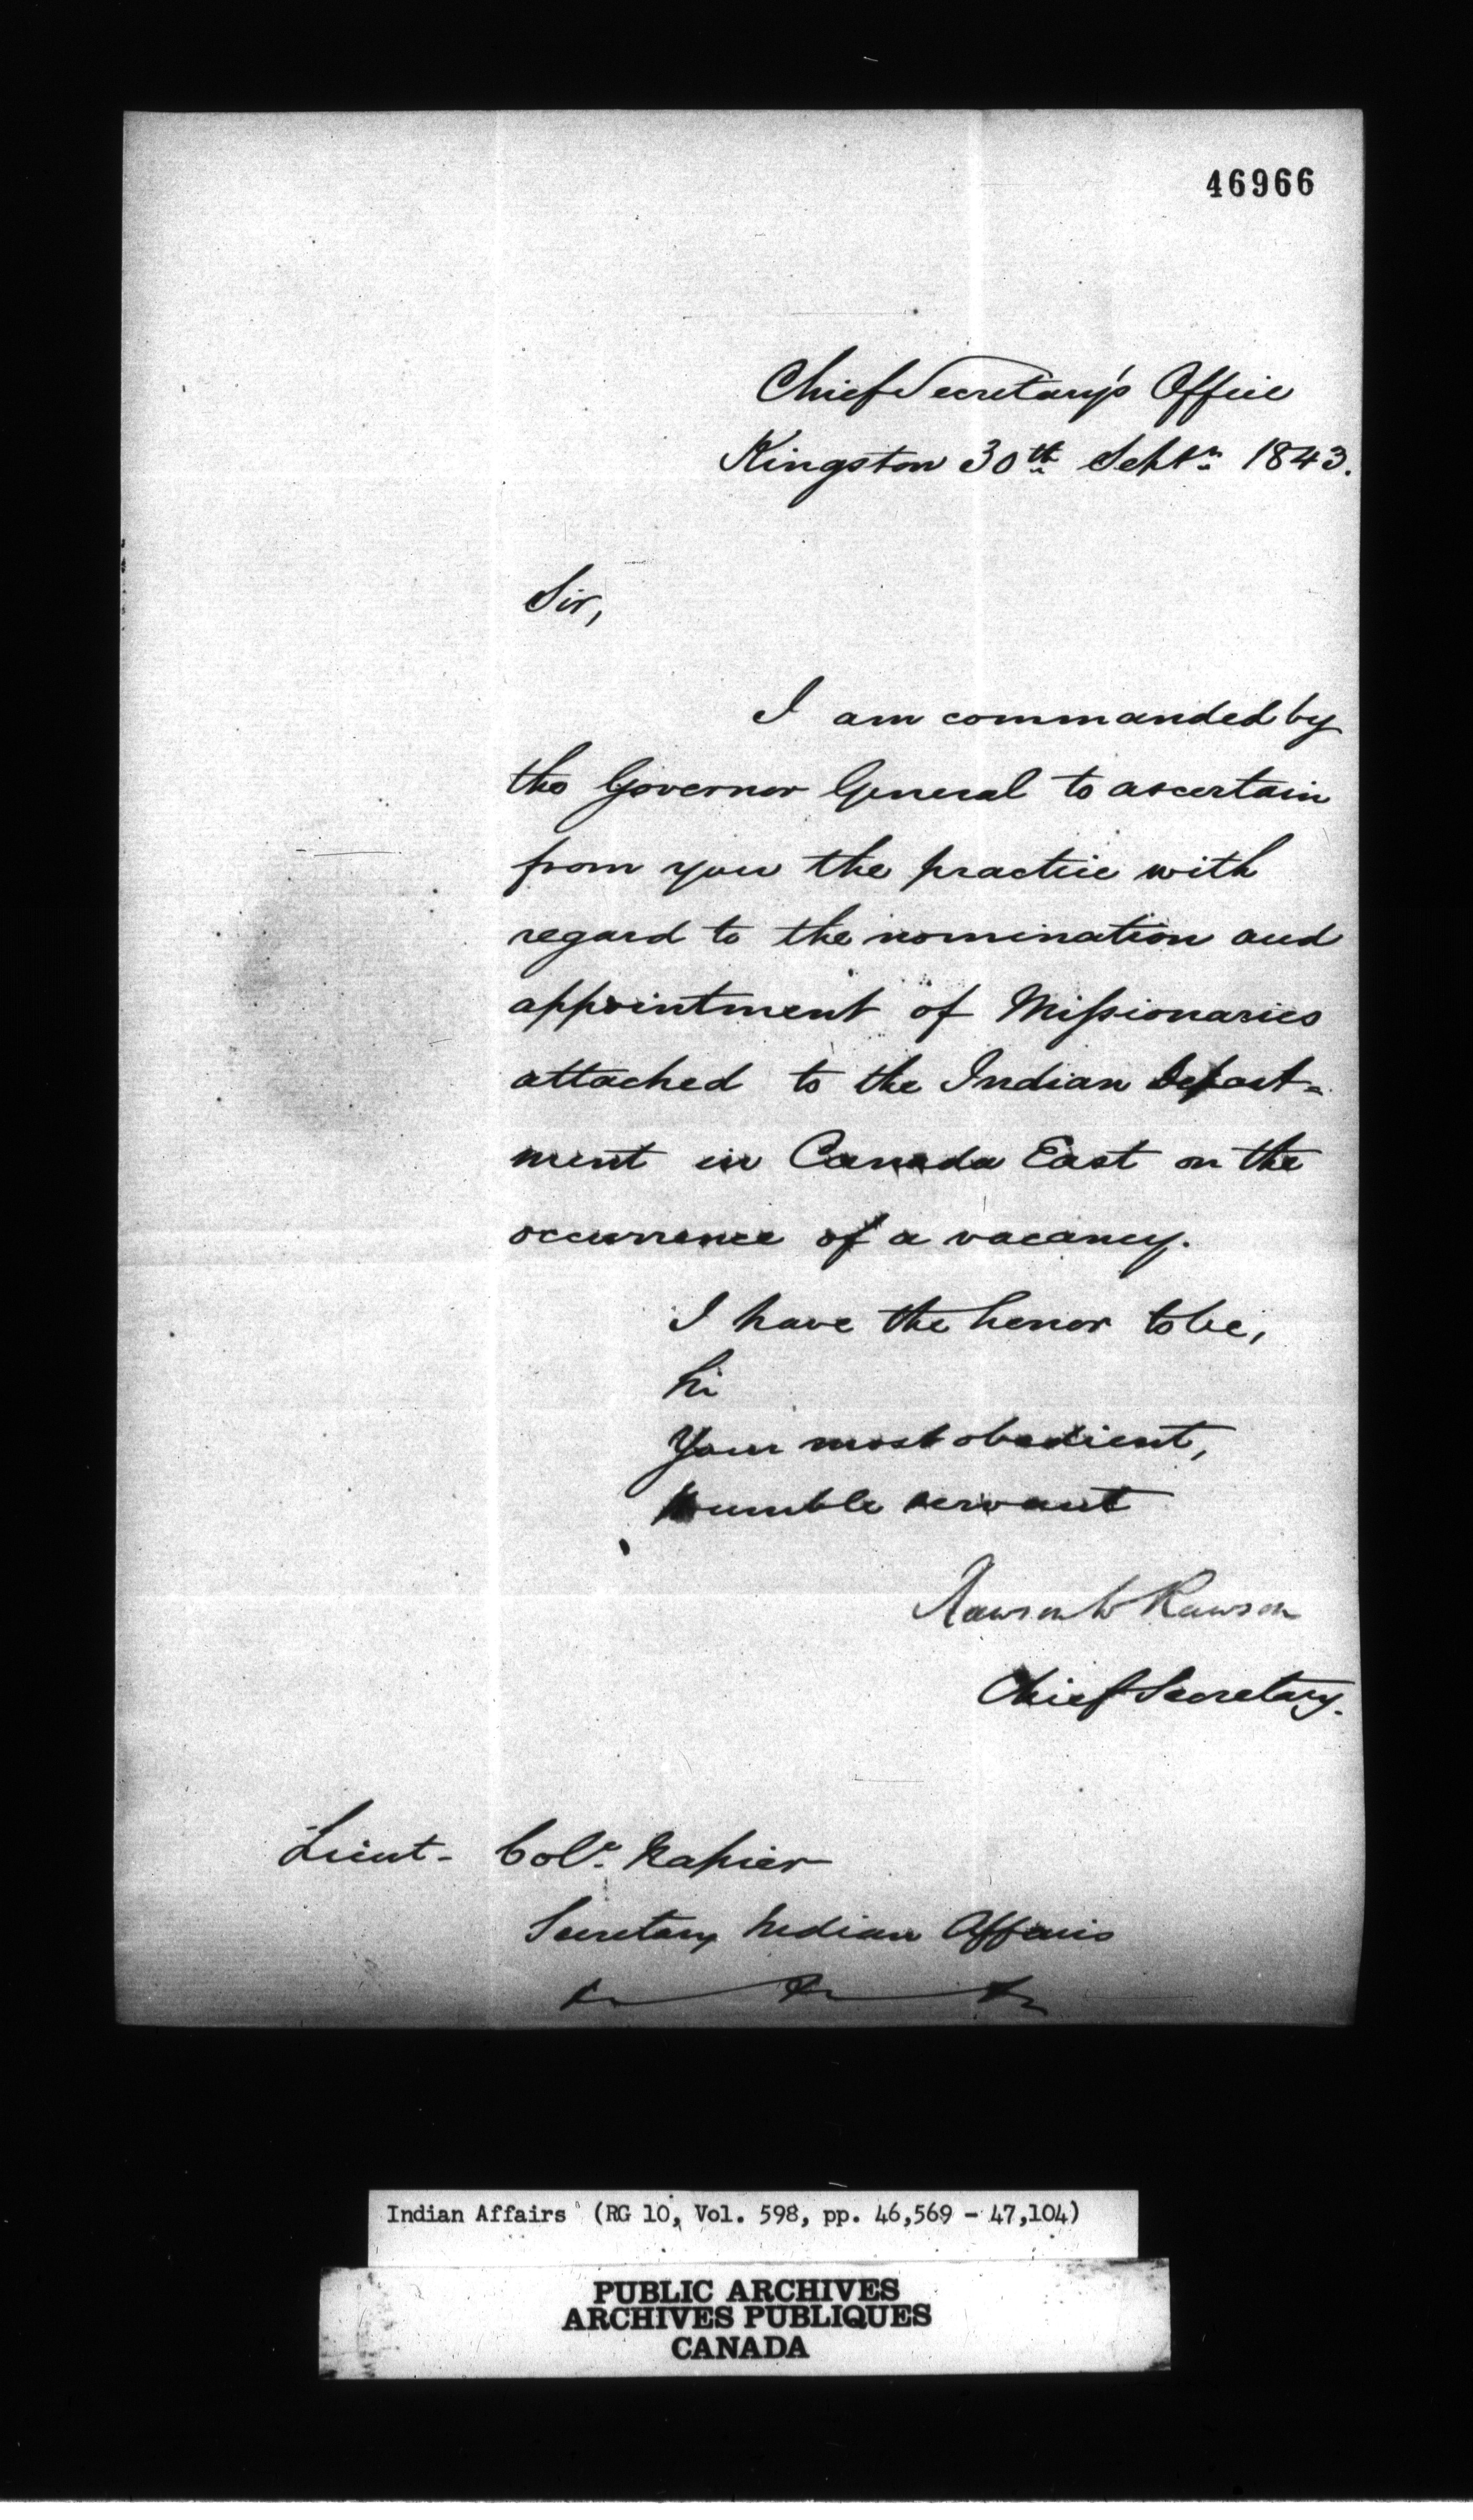 46966
Chief Secretary's Office
Kingston 30th Septr 1843.
Sir,
I am commanded by
the Governor General to ascertain
from you the practice with
regard to the nomination and
appointment of Missionaries
attached to the Indian Depart-
ment in Canada East on the
occurrence of a vacancy.
I have the honor to be,
Sir
Your most obedient,
humble servant
Rawson W Rawson
Chief Secretary.
Lieut- Col. Napier
Secretary Indian Affairs
Indian Affairs (RG 10, Vol. 598, pp. 46,569 - 47,104)
PUBLIC ARCHIVES
ARCHIVES PUBLIQUES
CANADA